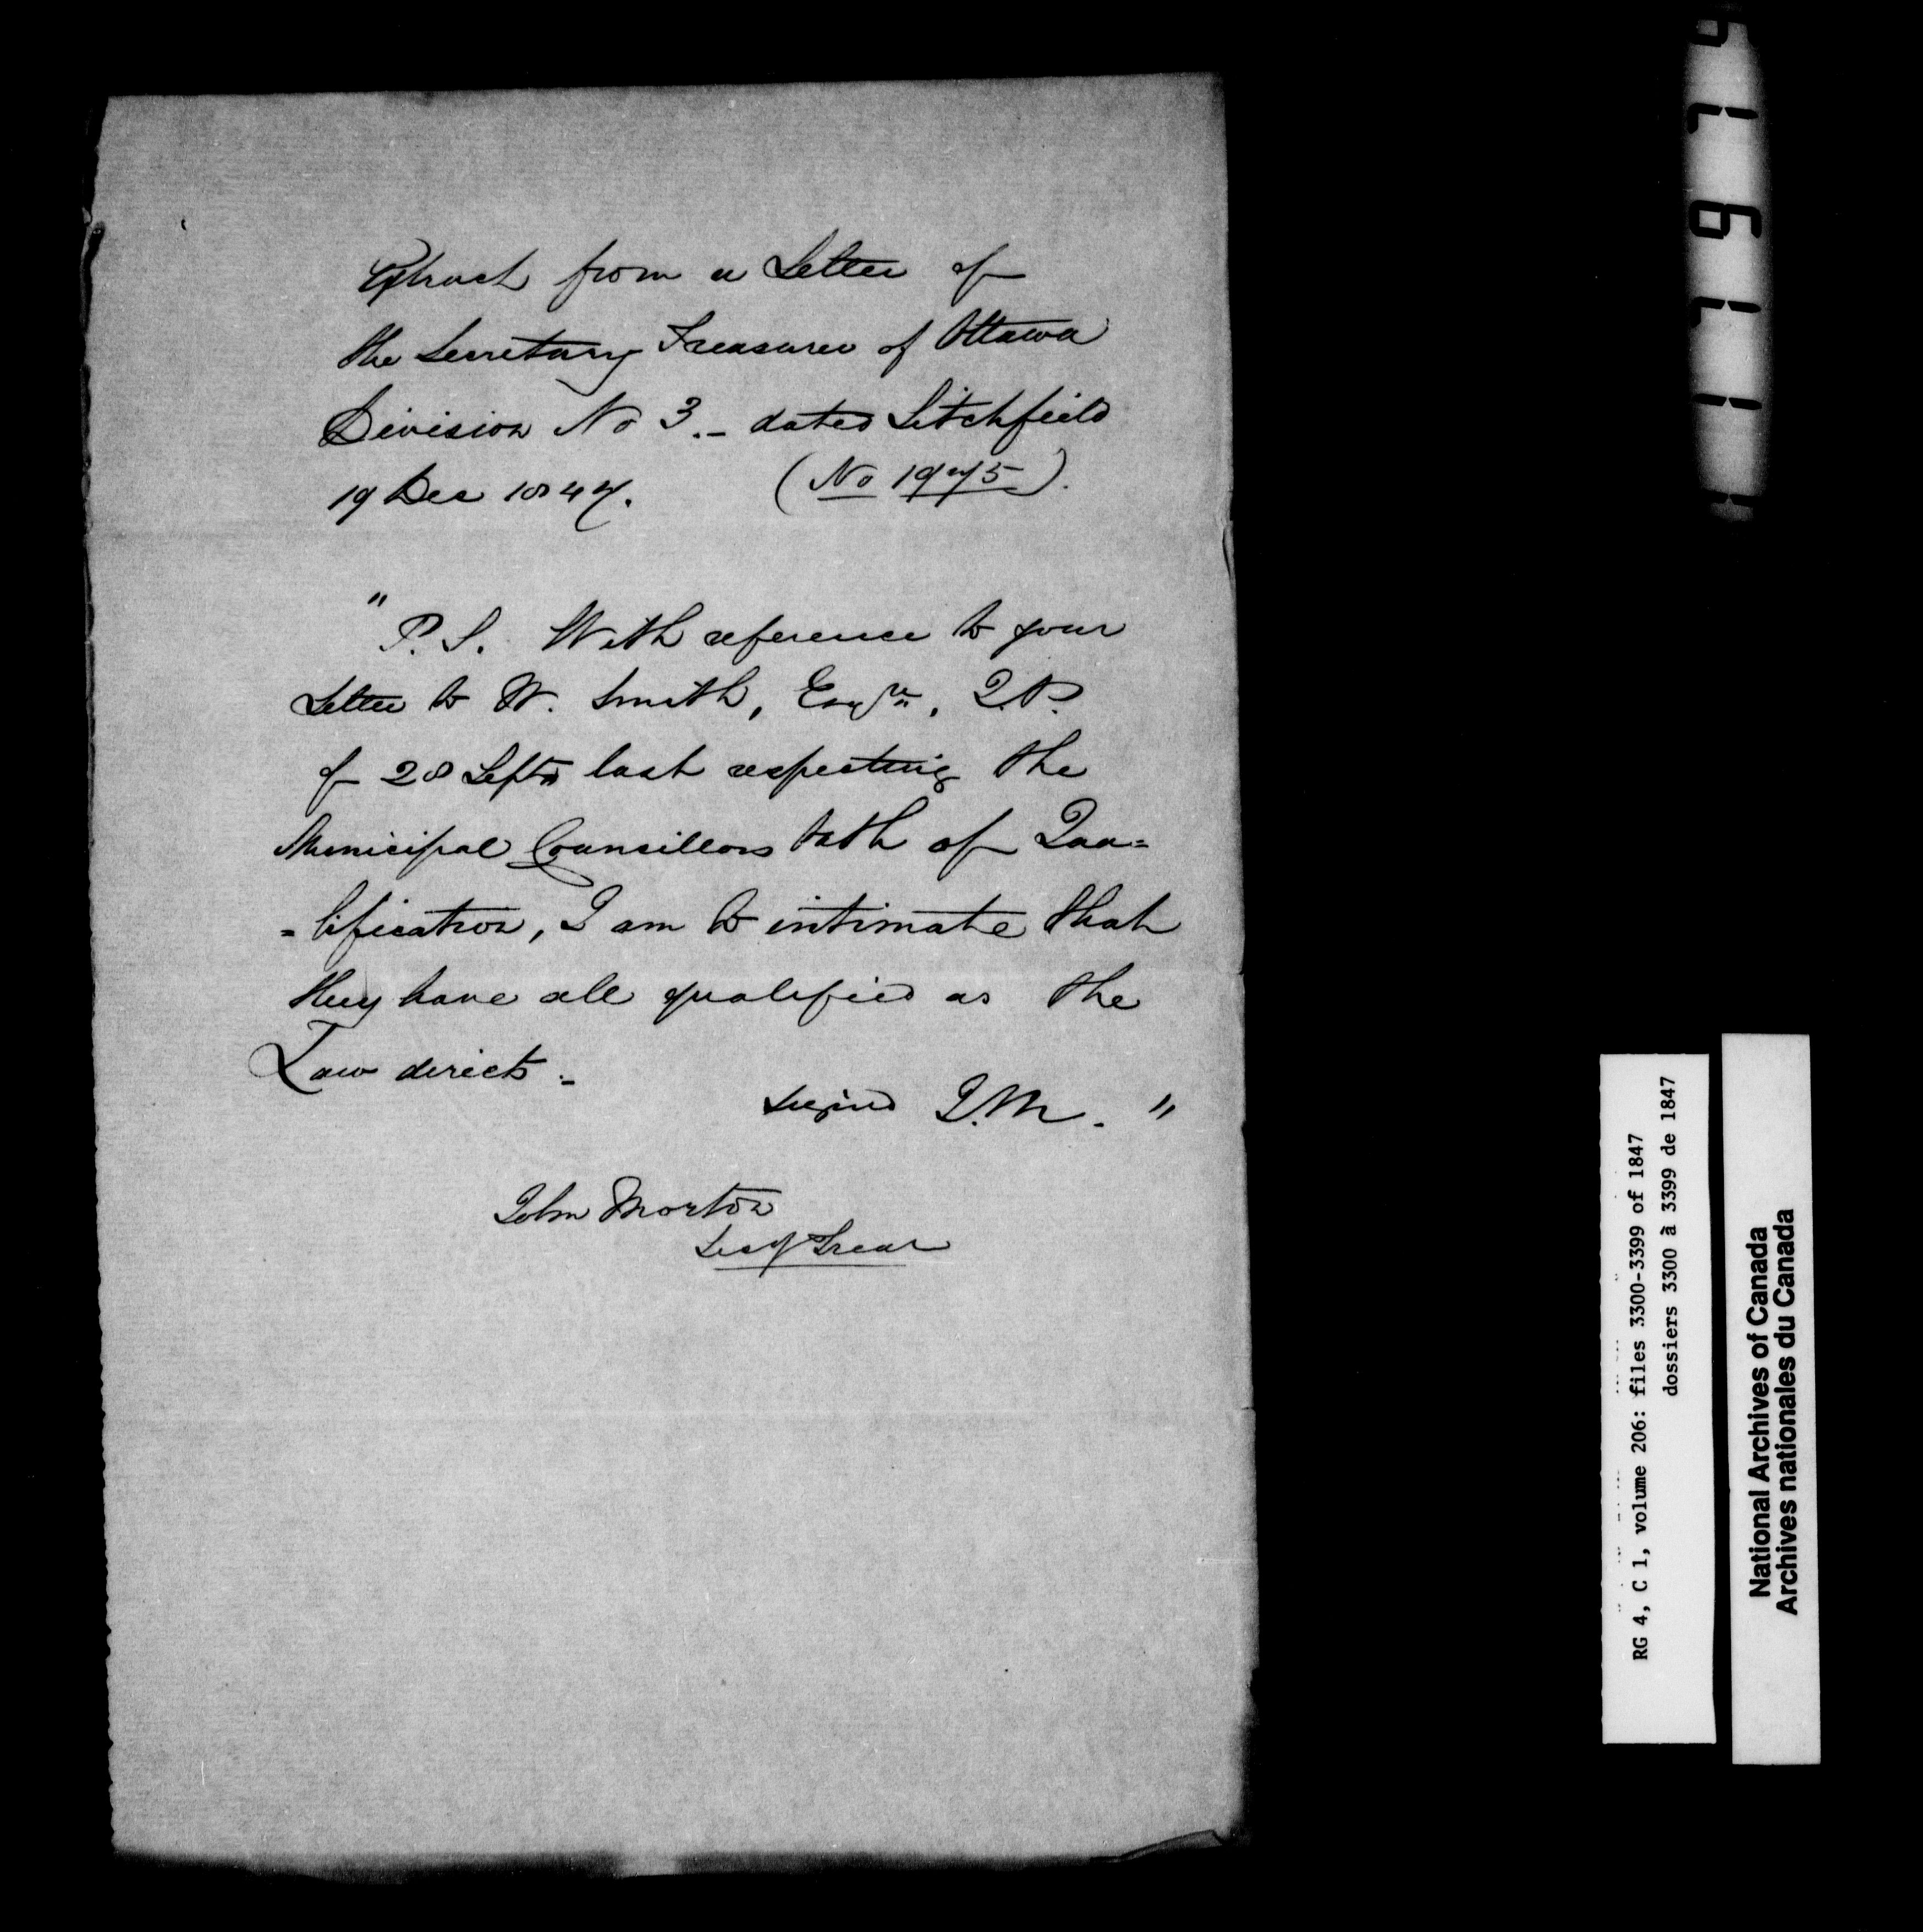 Extract from a Letter of
the Secretary Treasurer of Ottawa
Division No 3.- dated Litchfield
19 Dec 1847. (No 1975).
"P.S. With reference to your
Letter to W. Smith, Esqre, J.P.
of 28 Septr last respecting the
Municipal Councillors Oath of Qua=
=lification, I am to intimate that
they have all qualified as the
Law directs.-
signed J.M. "
John Morton
Secy Trear
RG 4, C 1, volume 206: files 3300-3399 of 1847
dossiers 3300 à 3399 de 1847
National Archives of Canada
Archives nationales du Canada